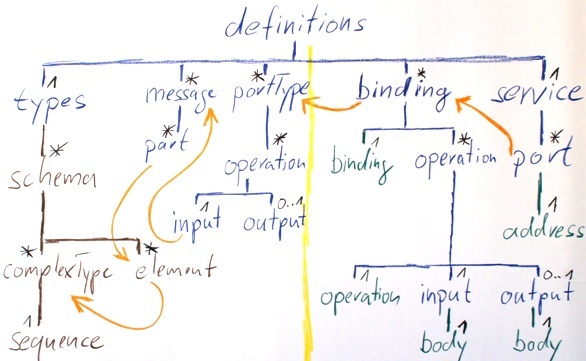 definitions
1 * * * 1
types message portType binding service
* * * 1 * *
part
schema operation binding operation port
1 0..1 1
input output address
* * 1 1 0..1
complexType element operation input output
1 1 1
sequence body body